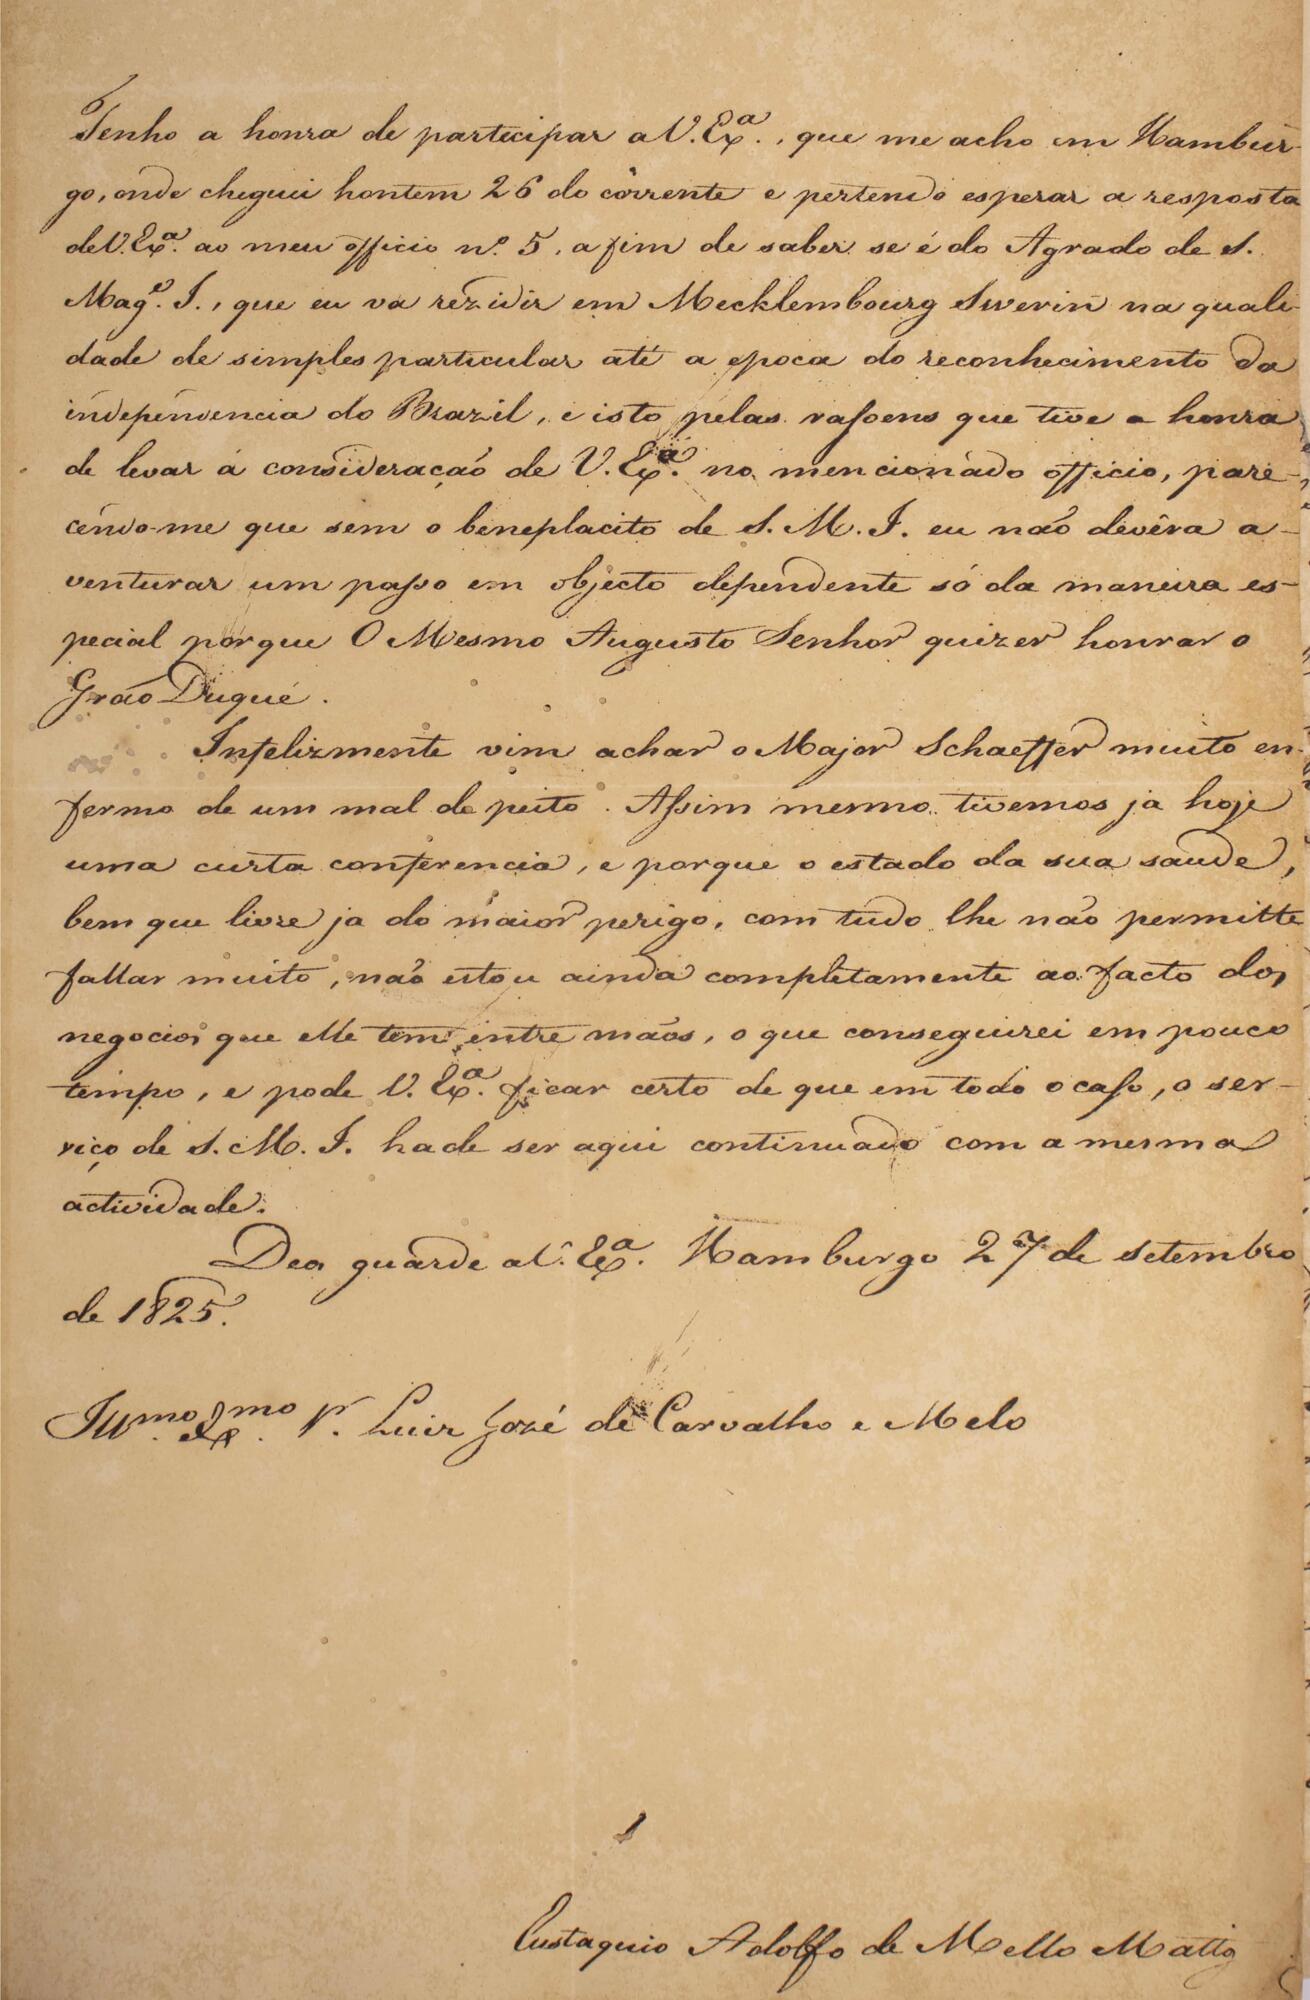 Tenho a honra de participar a V. Exª., que me acho em Hambur-
go, onde cheguei hontem 26 do córrente e pertendo esperar a resposta
de V. Exª. ao meu officio nº. 5, a fim de saber se é do Agrado de S.
Magᵉ. I., que eu vá rezidir em Mecklembourg Swerin na quali-
dade de simples particular até a epoca do reconhecimento da
independencia do Brazil, e isto pelas rasoens que tive a honra
de levar á consideração de V. Exª. no mencionado officio, pare-
cendo-me que sem o beneplacito de S. M. I. eu não devêra a-
venturar um passo em objecto dependente só da maneira es-
pecial porque O Mesmo Augusto Senhor quizer honrar o
Grão Duque.
Infelizmente vim achar o Major Schaeffer muito en-
fermo de um mal de peito. Assim mesmo tivemos já hoje
uma curta conferencia, e porque o estado da sua saude,
bem que livre já do maior perigo, com tudo lhe não permitte
fallar muito, não estou ainda completamente ao facto dos
negocios que elle tem entre mãos, o que conseguirei em pouco
tempo, e pode V. Exª. ficar certo de que em todo o caso, o ser-
viço de S. M. I. hade ser aqui continuado com a mesma
actividade.
Deos guarde a V. Exª. Hamburgo 27 de Setembro
de 1825.
Illᵐᵒ. Exᵐᵒ. Sʳ. Luiz Jozé de Carvalho e Melo
Eustaquio Adolfo de Mello Mattos